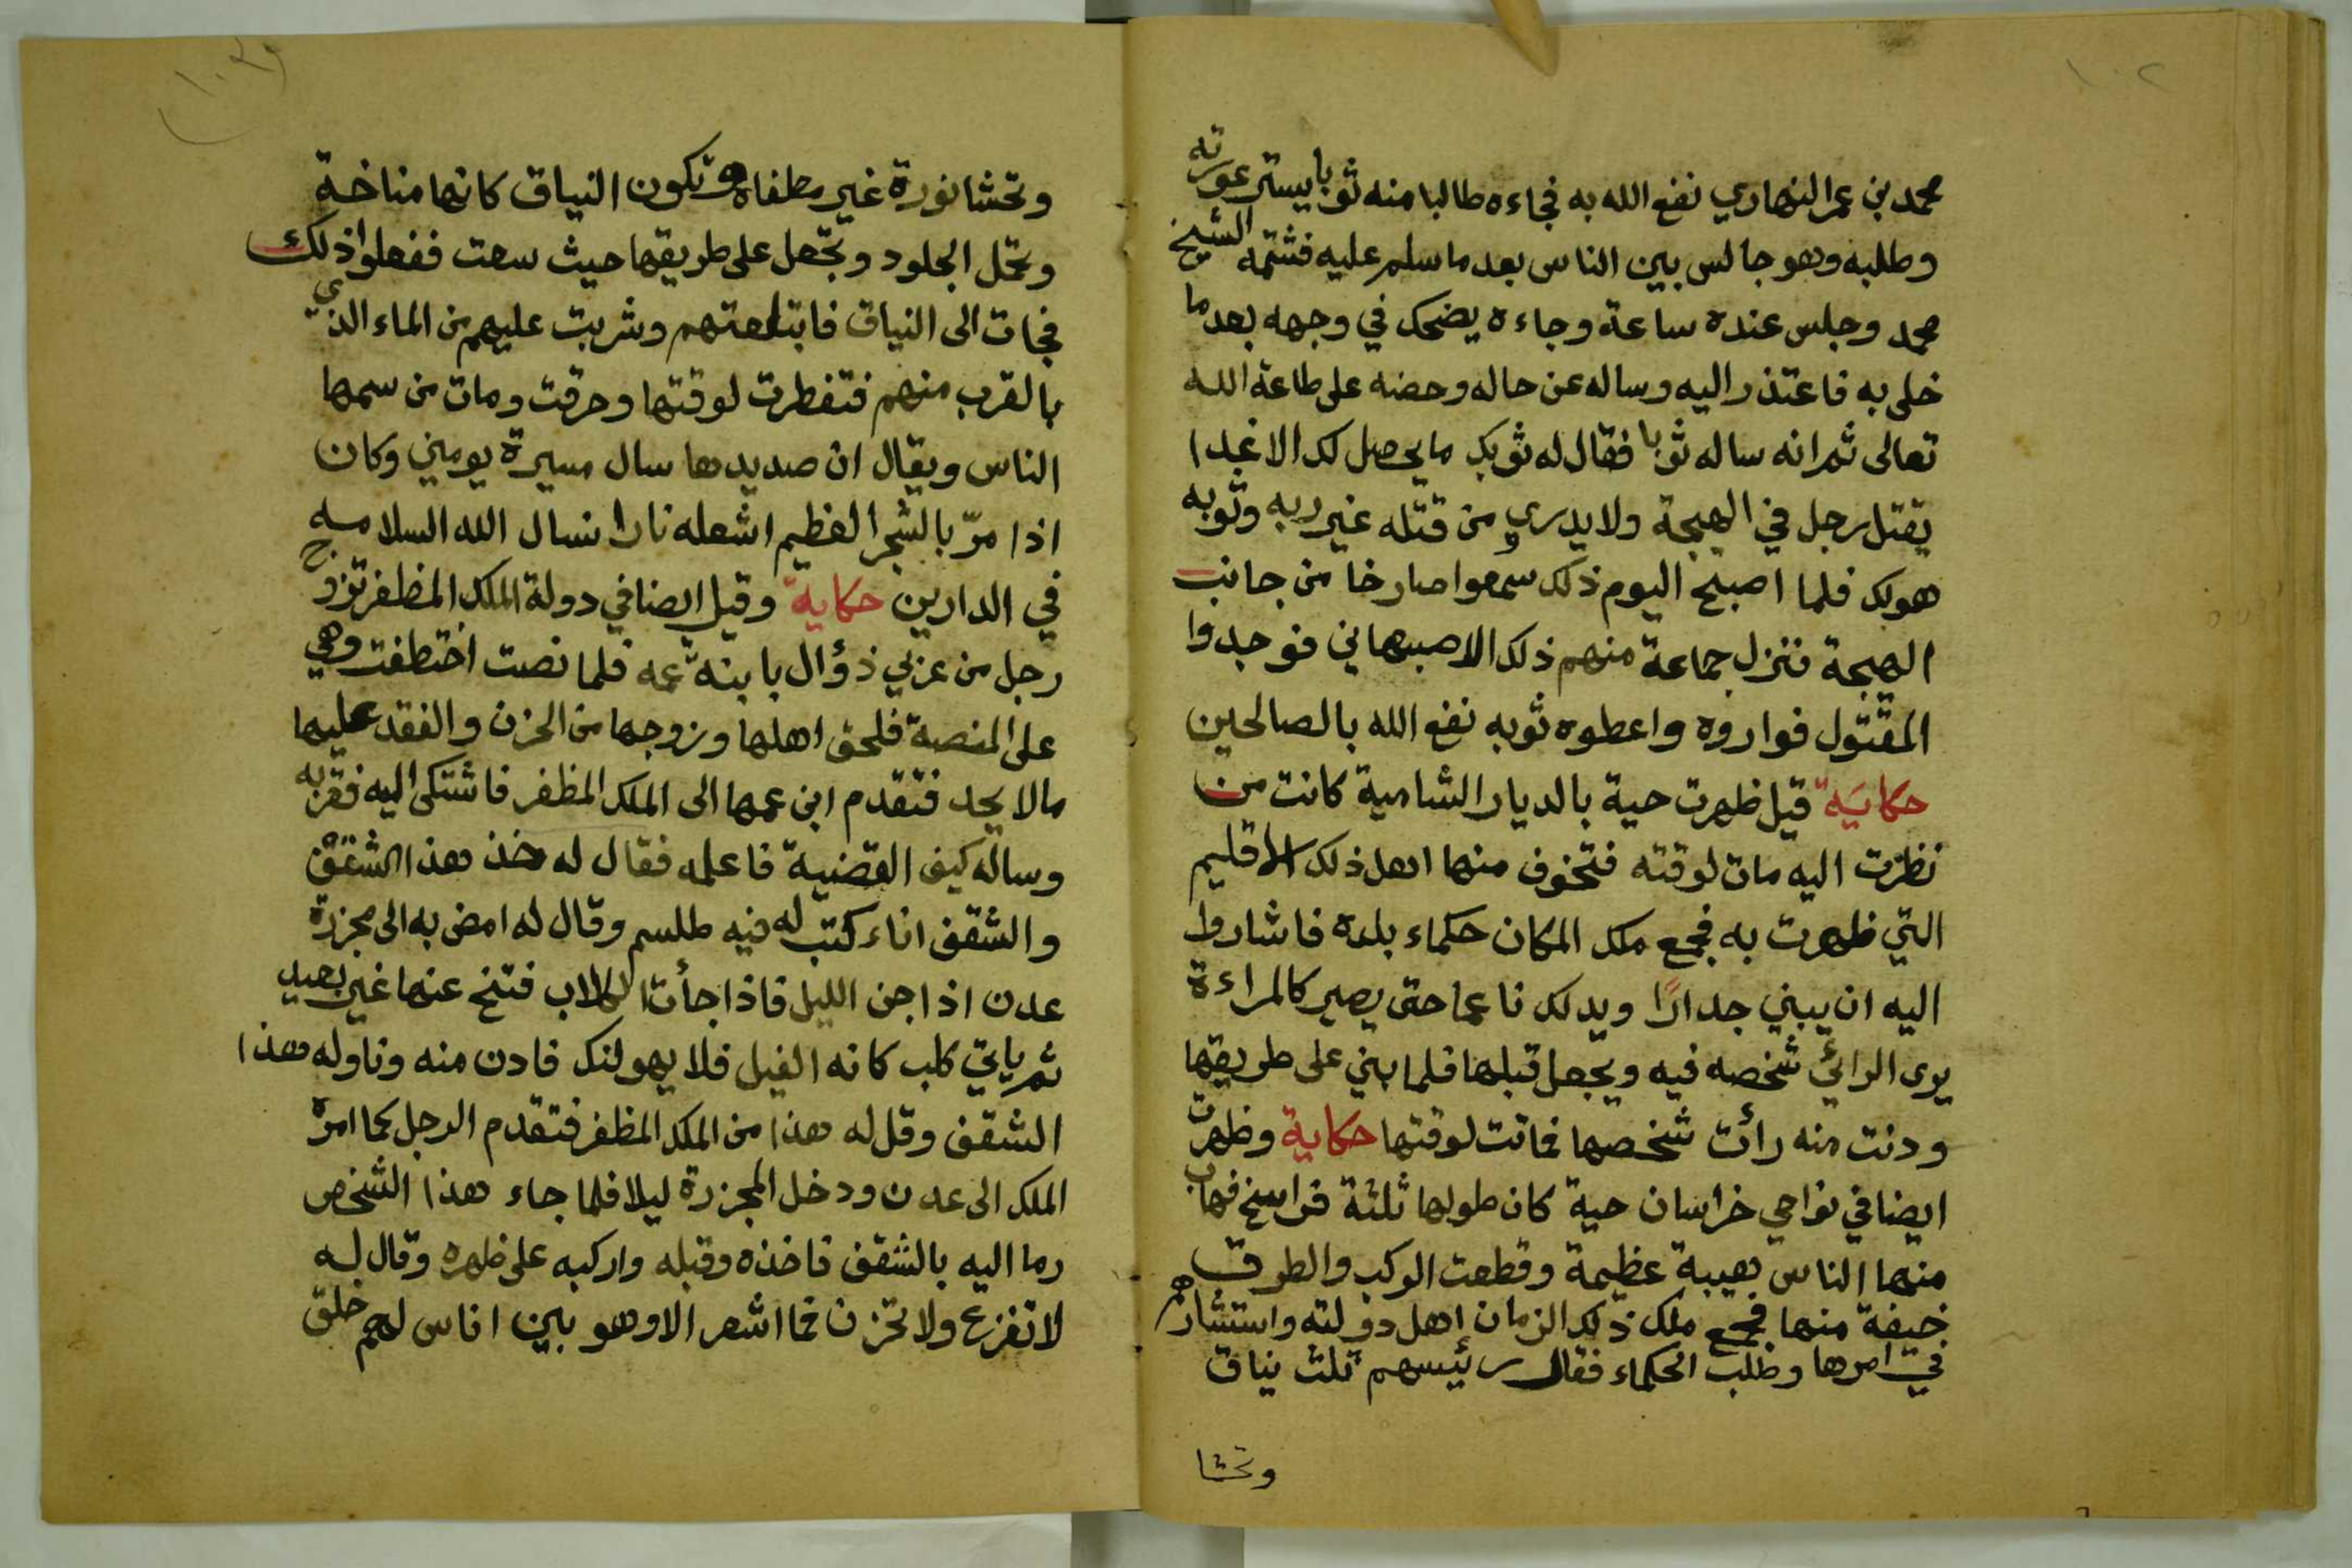 ١٠٢
محمد بن عمر النهاري نفع الله به فجاءه طالبا منه ثوبا يستر عورته
وطلبه وهو جالس بين الناس بعد ما سلم عليه فشتمه الشيخ
محمد وجلس عنده ساعة وجاءه يضحك في وجهه بعد ما
خلى به فاعتذر اليه وساله عن حاله وحضه على طاعة الله
تعالى ثم انه ساله ثوبا فقال له ثوبك ما يحصل لك الا غدا
يقتل رجل في الهيجة ولا يدري من قتله غير ربه وثوبه
هو لك فلما اصبح اليوم ذلك سمعوا صارخا من جانب
الهيجة فنزل جماعة منهم ذلك الاصبهاني فوجدوا
المقتول فواروه واعطوه ثوبه نفع الله بالصالحين
حكاية قيل ظهرت حية بالديار الشامية كانت من
نظرت اليه مات لوقته فتخوف منها اهل ذلك الاقليم
التي ظهرت به فجمع ملك المكان حكماء بلده فاشاروا
اليه ان يبني جدارًا ويدلك ناعما حتى يصير كالمراءة
يرى الرائي شخصه فيه ويجعل قبلها فلما بني على طريقها
ودنت منه رأت شخصها فماتت لوقتها حكاية وظهرت
ايضا في نواحي خراسان حية كان طولها ثلثة فراسخ فهاب
منها الناس هيبة عظيمة وقطعت الركب والطرق
خيفة منها فجمع ملك ذلك الزمان اهل دولته واستشارهم
في امرها وطلب الحكماء فقال رئيسهم ثلث نياق
وتحشا
وتحشا نورة غير مطفاه وتكون النياق كانها مناخة
وتحمل الجلود وتجعل على طريقها حيث سعت ففعلوا ذلك
فجات الى النياق فابتلعتهم وشربت عليهم من الماء الذي
بالقرب منهم فتفطرت لوقتها وحرقت ومات من سمها
الناس ويقال ان صديدها سال مسيرة يومين وكان
اذا مرّ بالشجر العظيم اشعله نارا نسال الله السلامه
في الدارين حكاية وقيل ايضا في دولة الملك المظفر تزوج
رجل من عزبي ذؤال بابنة عمه فلما نصت اختطفت وهي
على المنصة فلحق اهلها وزوجها من الحزن والفقد عليها
مالا يحد فتقدم ابن عمها الى الملك المظفر فاشتكى اليه فقربه
وساله كيف القضية فاعلمه فقال له خذ هذا الشقف
والشقف اناء كتب له فيه طلسم وقال له امض به الى مجزرة
عدن اذا جن الليل فاذا جأت الكلاب فتنح عنها غير بعيد
ثم ياتي كلب كانه الفيل فلا يهولنك فادن منه وناوله هذا
الشقف وقل له هذا من الملك المظفر فتقدم الرجل كما امره
الملك الى عدن ودخل المجزرة ليلا فلما جاء هذا الشخص
رما اليه بالشقف فاخذه وقبله واركبه على ظهره وقال له
لا تفزع ولا تحزن فما اشعر الا وهو بين اناس لهم خلق